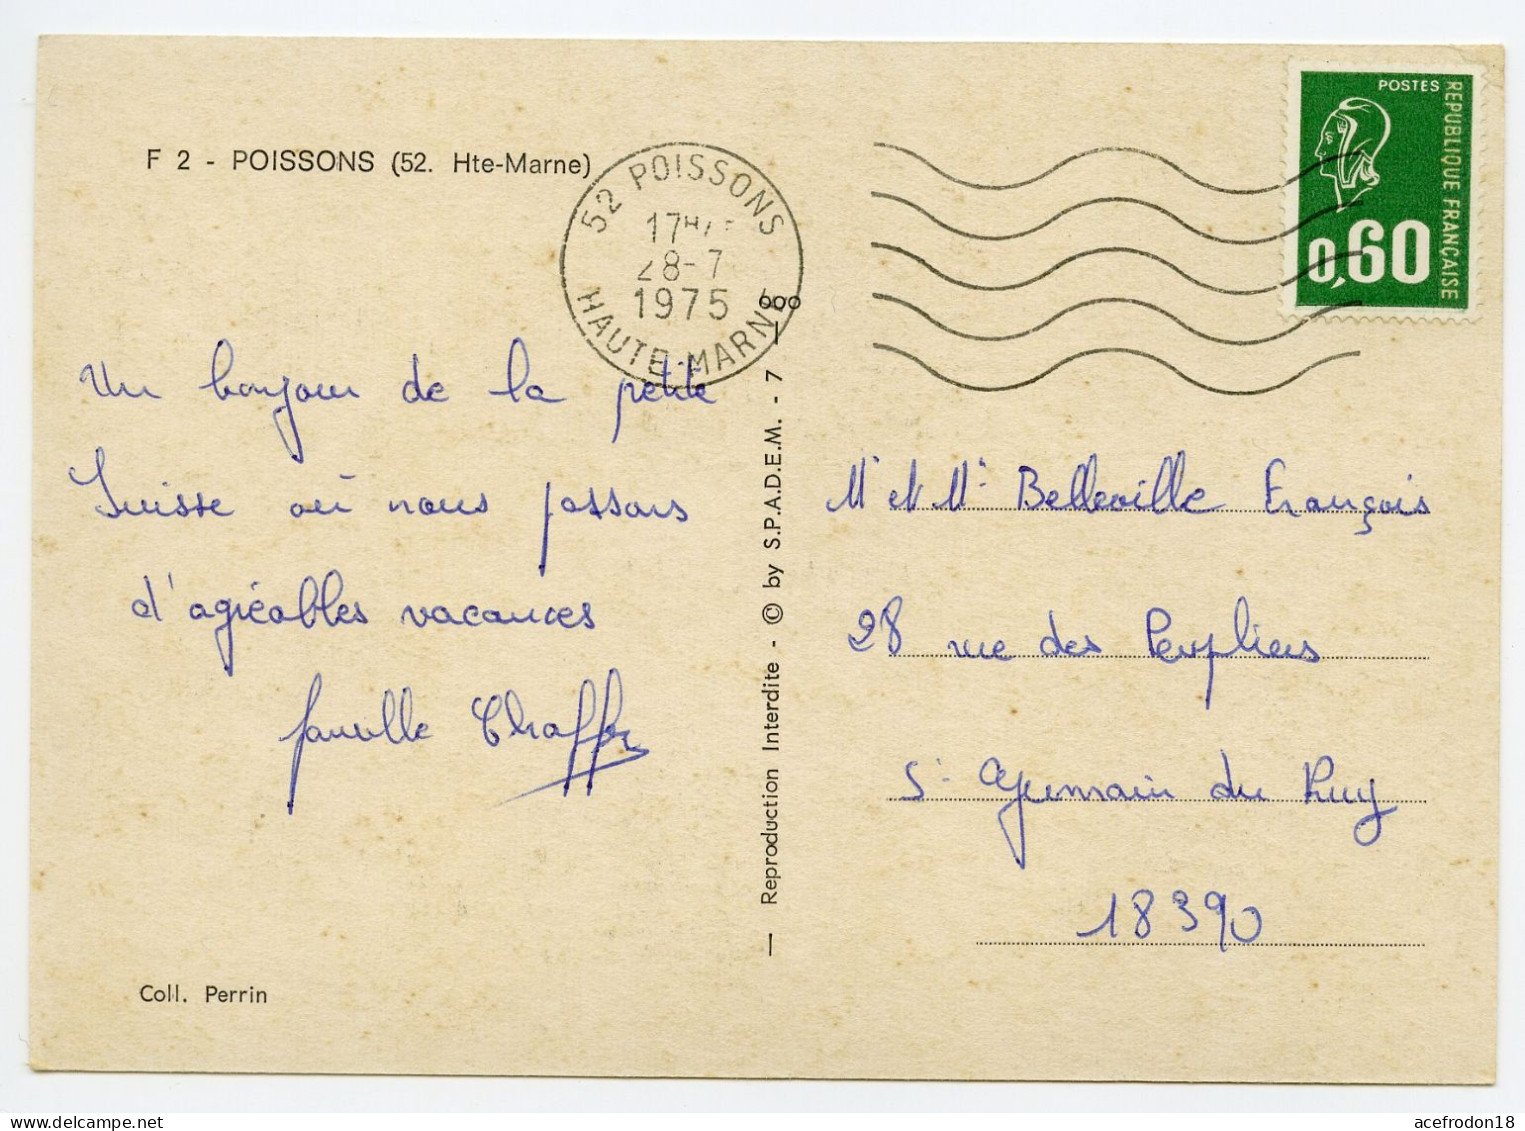 F 2 - POISSONS (52. Hte-Marne)
52 POISSONS
17H
28-7
1975
HAUTE-MARNE
POSTES
REPUBLIQUE FRANÇAISE
0,60
Un bonjour de la petite
Suisse où nous passons
d'agréables vacances
famille
Mr et Me Belleville François
28 rue des Peupliers
St Germain du Puy
18390
— Reproduction Interdite - © by S.P.A.D.E.M. - 7 — 000
Coll. Perrin
acefrodon18